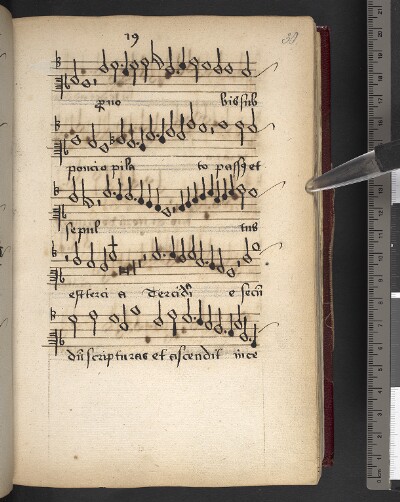 19 39
p̱no bis sub
poncio pila to pass9 et
sepul tus
est terci a Tercia e secū
dū scripturas et ascendit in ce